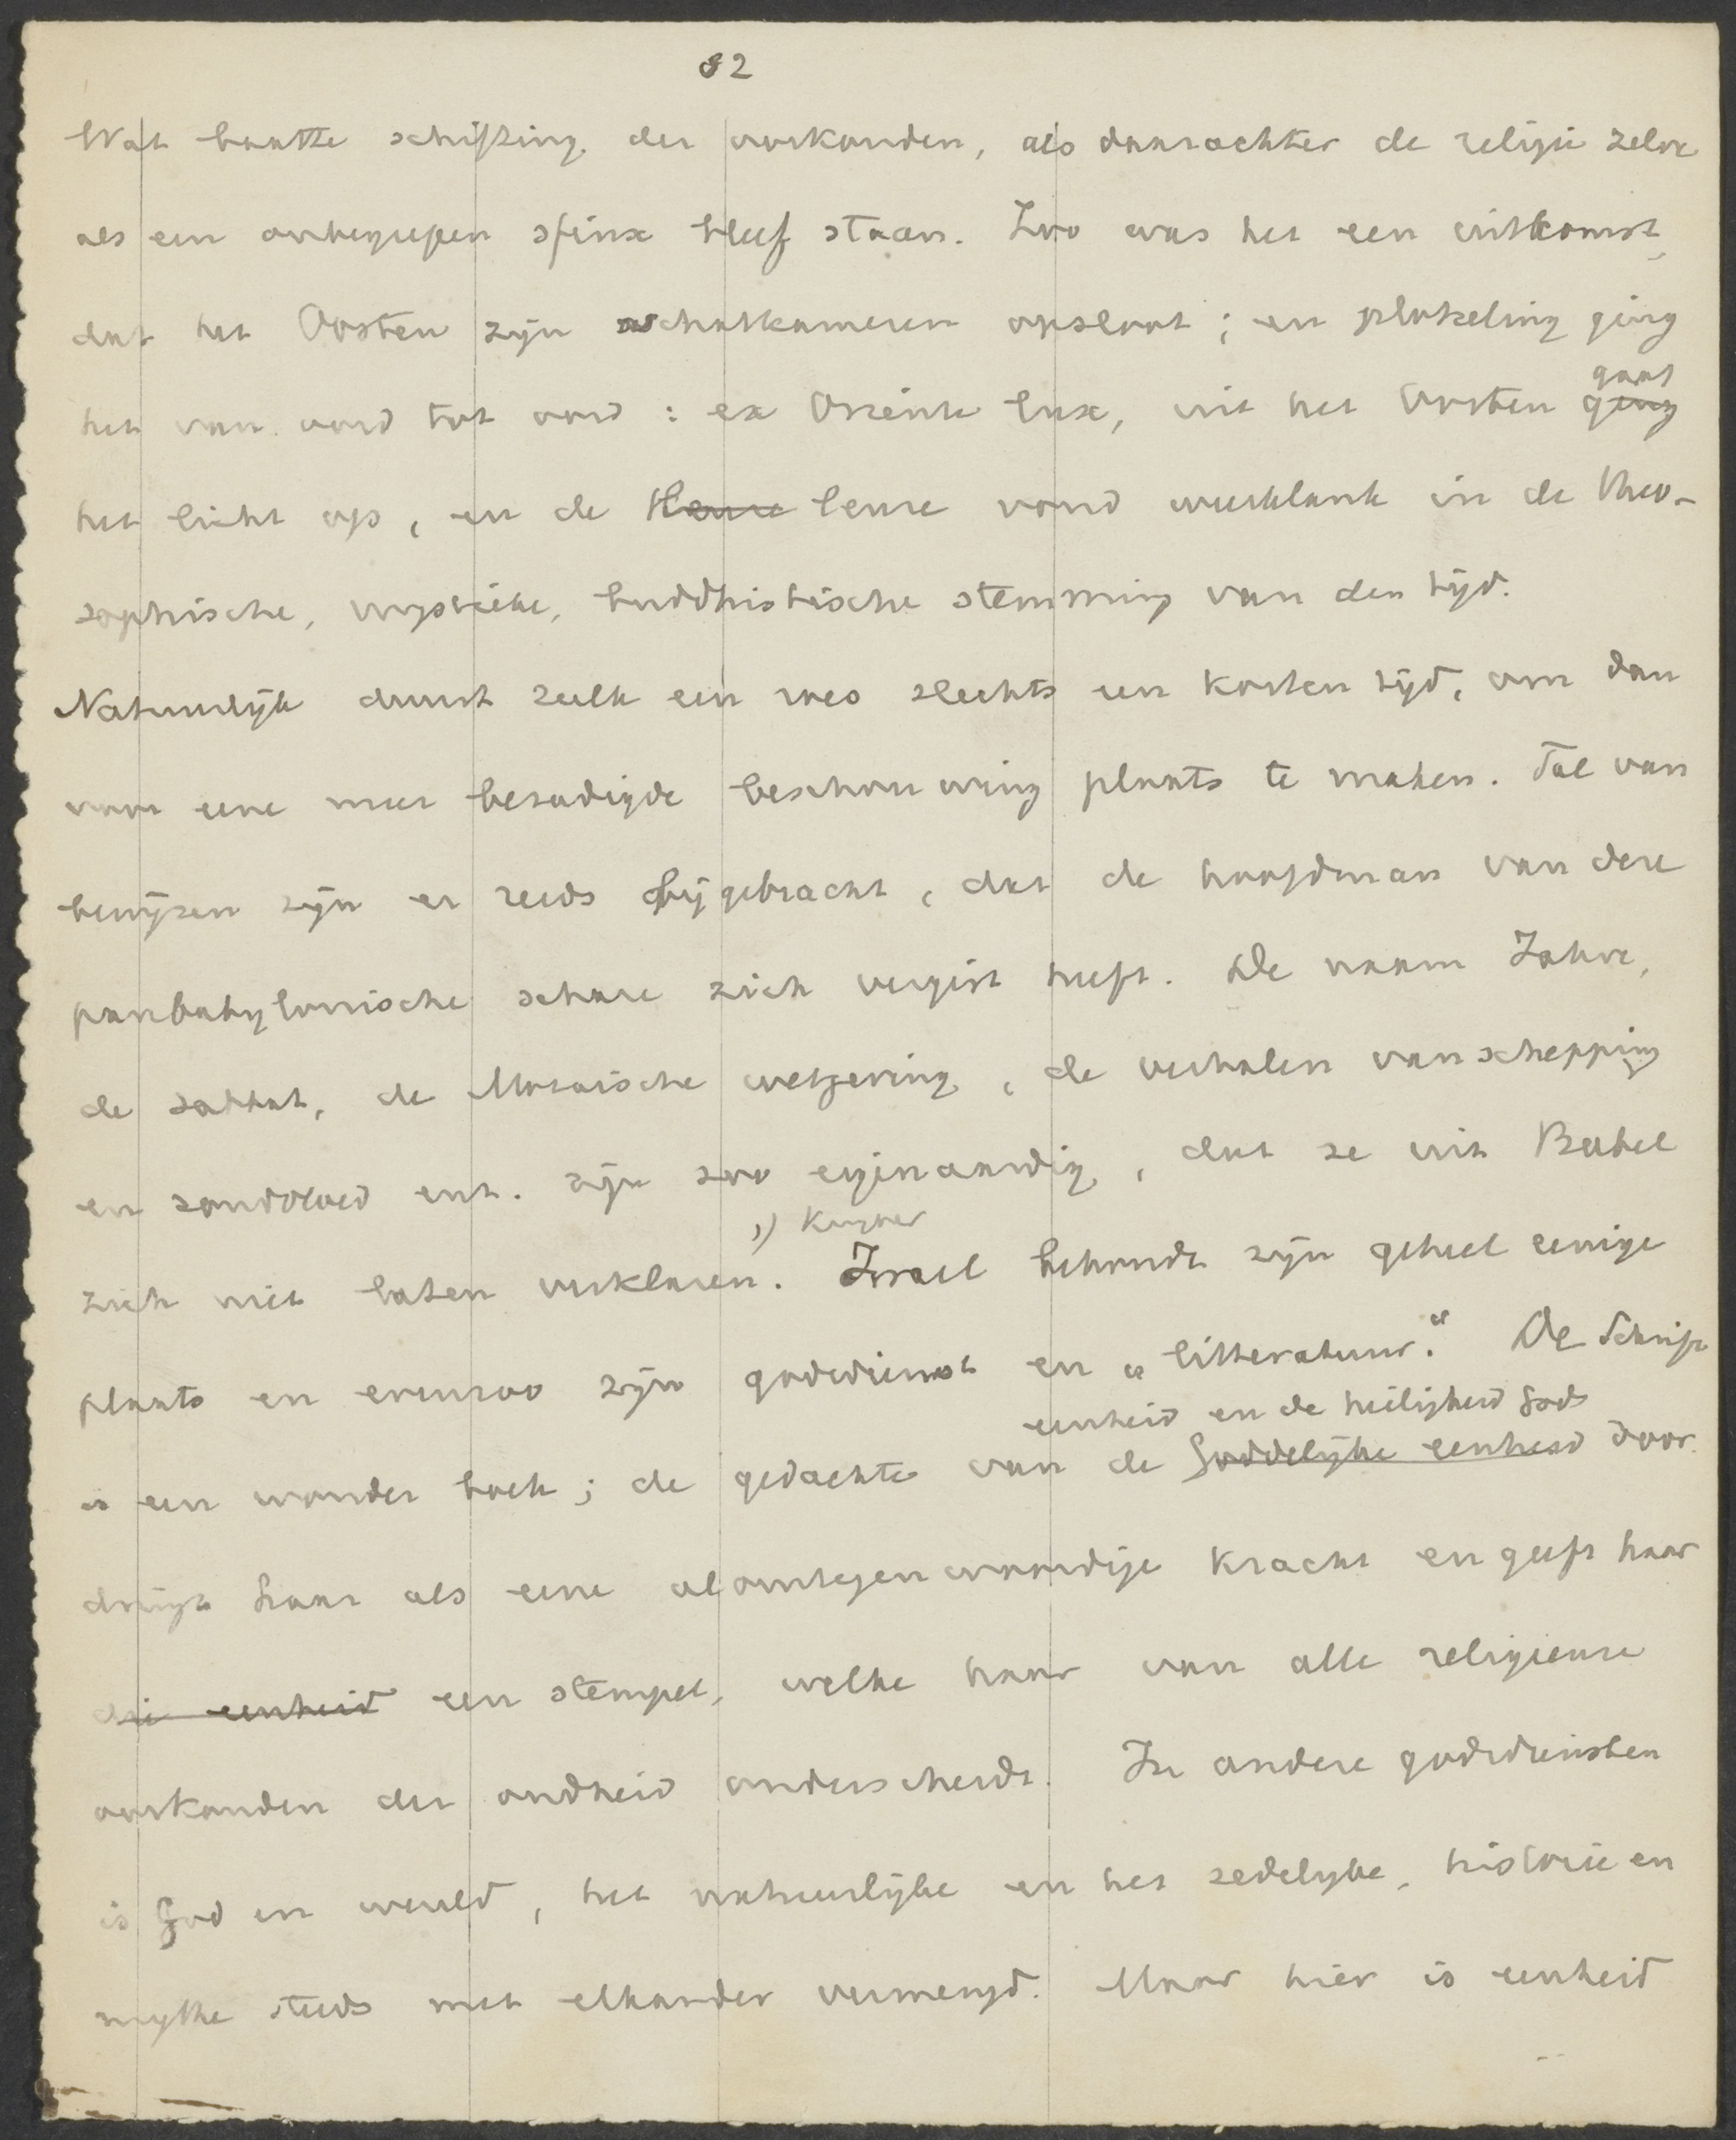 82
Wat baatte schifting der oorkonden, als daarachter de religie zelve
als een onbegrepen sfinx bleef staan. Zoo was het een uitkomst,
dat het Oosten zijn schatkameren opsloot; en plotseling ging
het van oord tot oord: ex Oriente lux, uit het Oosten ging gaat
het licht op, en de leuze vond weerklank in de theo-
sophische, mystieke, buddhistische stemming van den tijd.
Natuurlijk duurt zulk een roes slechts een korten tijd, om dan
voor eene meer bezadigde beschouwing plaats te maken. Tal van
bewijzen zijn er reeds bijgebracht, dat de hoofdman van deze
panbabylonische schare zich vergist heeft. De naam Jahve,
de sabbat, de Mozaische wetgeving, de verhalen van schepping
en zondvloed enz. zijn zoo eigenaardig, dat ze uit Babel
1) Kuyper
zich niet laten verklaren. Israel behoudt zijn geheel eenige
plaats en evenzoo zijn godsdienst en „litteratuur.“ De Schrift
eenheid en de heiligheid Gods
is een wonder boek; de gedachte van de Goddelijke eenheid door
dringt haar als eene alomtegenwoordige kracht en geeft haar
die eenheid een stempel, welke haar van alle religieuze
oorkonden der oudheid onderscheidt. In andere godsdiensten
is God en wereld, het natuurlijke en het zedelijke, historie en
mythe steeds met elkander vermengd. Maar hier is eenheid